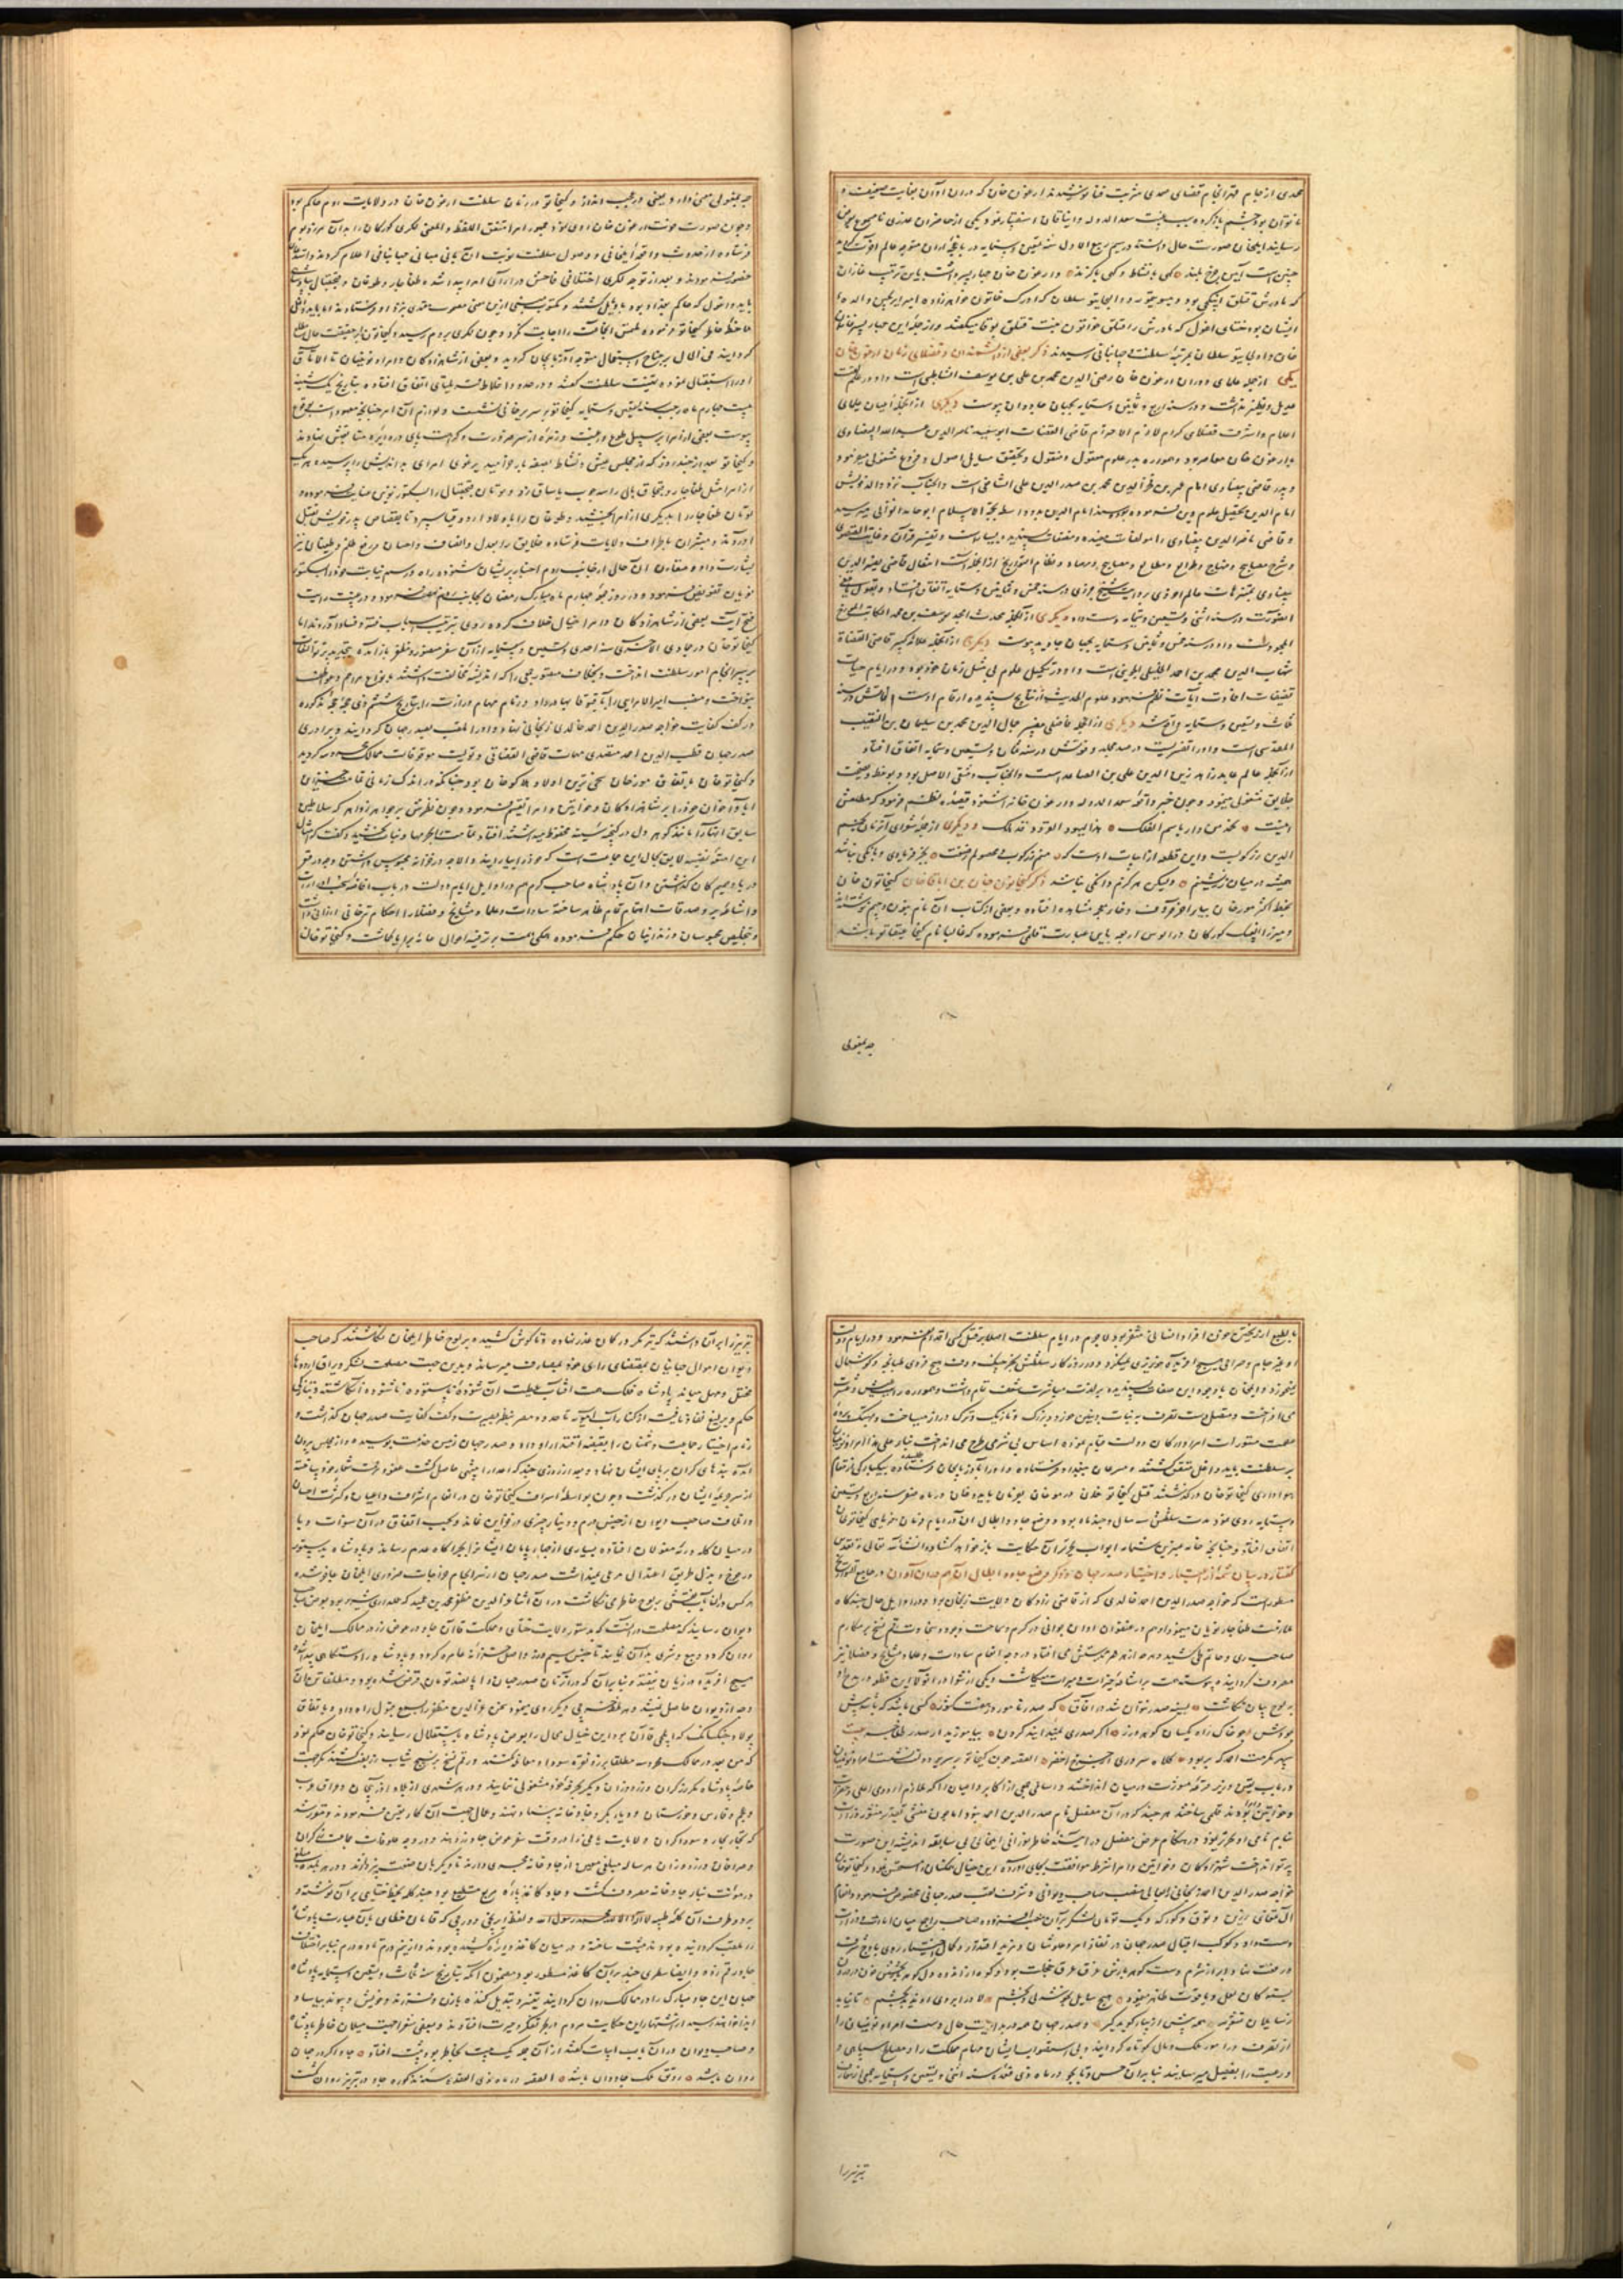 محمدی از جام قهر انجام قضای صمدی شربت فنا نوشیدند ارغون خان که در ان اوان بغایت ضعیف و
ناتوان بود چشم باز کرده سبب غیبت سعد الدوله و ایناقان استفسار نمود و یکی از حاضران عذری نامسموع بعرض
رسانید ایلخان صورت حال دانسته در سیم ربیع الاول سنه تسعین و ستمایه در باغچه اران متوجه عالم اخرت گردید
چنین است آیین چرخ بلند کهی با نشاط و کهی با گزند و ارغون خان چهار پسر داشت باین ترتیب غازان
که مادرش قتلق ایکچی بود و ییسو تیمور و اولجایتو سلطان که اورک خاتون خواهرزاده امیر ایرنجین والده
ایشان بود ختای اغول که مادرش را قتلق خواتون بنت قتلق بوقا میگفتند و از جمله این چهار پسر غازان
خان و اولجایتو سلطان بمرتبه سلطنت و جهانبانی رسیدند ذکر بعضی از دانشمندان و فضلای زمان ارغون خان
یکی از جمله علمای دوران ارغون خان رضی الدین محمد بن علی بن یوسف الشاطبی است و او در علم لغت
عدیل و نظیر نداشت و در سنه اربع و ثمانین و ستمایه بجهان جاودان پیوست دیگری از آنجمله اعیان علمای
اعلام و اشرف فضلای کرام لازم الاحترام قاضی القضات ابو سعید ناصر الدین عبد الله البیضاوی
با ارغون خان معاصر بود و همواره بدرس علوم معقول و منقول و تحقیق مسایل اصول و فروع مشغولی مینمود
و پدر قاضی بیضاوی امام عمر بن فخر الدین محمد بن صدر الدین علی الشافعی است و انجناب نزد والد خویش
امام الدین تحصیل علوم دین فرموده بود و سند امام الدین بدو واسطه بحجة الاسلام ابو حامد الغزالی میرسید
و قاضی ناصر الدین بیضاوی را مولفات مفیده و مصنفات پسندیده بسیار است و تفسیر قرآن و غایة القصوی
و شرح مصابیح و منهاج و طوالع و مطالع و مصباح و مرصاد و نظام التواریخ از انجمله است انتقال قاضی نصیر الدین
بیضاوی بمتنزهات عالم اخروی بروایت شیخ جزری در سنه خمس و ثمانین و ستمایه اتفاق افتاد و بقول یافعی
اینصورت در سنه اثنی و تسعین و ستمایه دست داد دیگری از آنجمله محدث امجد یوسف بن محمد الکاتب المورخ
المجود است و او در سنه خمس و ثمانین و ستمایه بجهان جاوید پیوست دیگری از آنجمله علامه کبیر قاضی القضاة
شهاب الدین محمد بن احمد الخلیلی الجوینی است و او در تکمیل علوم بی مثل زمان خود بوده و در ایام حیات
تصنیفات افادت آیات نظم نمود و علوم الحدیث از نتایج پسندیده ارقام اوست وفاتش در سنه
ثلث و تسعین و ستمایه واقع شد دیگری از انجمله فاضل مفسر جمال الدین محمد بن سلیمان بن النقیب
المقدسی است و او را تفسیریست در صد مجلد و فوتش در سنه ثمان و تسعین و ستمایه اتفاق افتاد
از انجمله عالم عابد زاهد زین الدین علی بن الصاعد است و انجناب دمشقی الاصل بود و بوعظ و نصیحت
خلایق مشغولی مینمود و چون خبر واقعه سعد الدوله و ارغون خان استنود قصیده نظم فرمود که مطلعش
اینست نحمد من دار باسم الفلک هذا الیهود القرود قد هلک و دیگری از جمله شعرای آنزمان نجم
الدین زرکوبست و این قطعه از ابیات اوست که منم زرکوب و محصولم ز صنعت بجز فریادی و بانگی نباشد
همیشه در میان زر نشینم ولیکن هرگزم دانگی نباشد ذکر کیخاتون خان بن اباقا خان کیخاتون خان
بخط اکثر مورخان بیا و آخر حروف و خا و تا و جیم مشاهده افتاده و بعضی از کتاب آن نام بنون و جیم نوشته اند
و میرزا الغ بیک کورکان در الوس اربعه باین عبارت قلمی فرموده که غالبا نام کیخاتو عیقاتو باشد
چه بمغولی
چه بمغولی معنی دارد و معنی در عجب اندازد و کیخاتو در زمان سلطنت ارغون خان در ولایات روم حاکم بود
و چون صورت فوت ارغون خان روی نمود جمهور امرا متفق اللفظ و المعنی لکزی کورکان را بدان مرز و بوم
فرستاده از حدوث واقعه ایلخانی و وصول سلطنت نوبت آن بانی مبانی جهانبانی اعلام کردند و استدعاء
حضور نمودند و بعد از توجه لکزی اختلافی فاحش در ارای امرا پیدا شده طغاجار و طوغان و قنجقبال بپادشاهی
بایدو اغول که حاکم بغداد بود بایل گشتند و مکتوب مبنی ازین معنی مصحوب معتمدی نزد او فرستادند اما بایدو جانب
ملاحظه خاطر کیخاتو فرموده ملتمس انجماعت را اجابت نکرد و چون لکزی بروم رسیده کیخاتو را بر حقیقت حال مطلع
گردانید فی الحال بر جناح استعجال متوجه آذربایجان گردید و بعضی از شاهزادگان و امرا و نوئینان تا الاتاق
او را استقبال نموده تهنیت سلطنت گفتند و در حدود اخلاط قوریلتای اتفاق افتاده بتاریخ یکشنبه
بیست چهارم ماه رجب سنه تسعین و ستمایه کیخاتو بر سریر خانی نشست و لوازم آن امر چنانچه معهود است بوقوع
پیوست بعضی از امرا بر سبیل طوع و رغبت و زمره از سر ضرورت و کراهت پای در دایره متابعتش نهادند
و کیخاتو بعد از چند روز که از مجلس عیش و نشاط بصفه بار خرامید یرغوی امرای بد اندیش را پرسیده هر یک
از امرا مثل طغاجار و قنجاق بالی را سه چوب یاساق زد و تومان قنجقبال را بشیکتور نوین عنایت فرمود و
تومان طغاجار را بدیگری از امرا بخشید و طوغان را با ولاد اردو قیا سپرد تا بقصاص پدر خویش بقتل
آوردند و مبشران باطراف ولایات فرستاده خلایق را بعدل و انصاف و احسان و رفع ظلم و طغیان نیز
بشارت داد و مقارن آن حال از جانب روم اخبار پریشان شنوده راه و رسم نیابت خود را بشیکتور
نویان تفویض فرمود و در روز جمعه چهارم ماه مبارک رمضان بجانب روم نهضت فرمود و در غیبت رایت
فتح آیت بعضی از شاهزادگان و امرا خیال خلاف کرده روی بترتیب اسباب فتنه و فساد آوردند اما
کیخاتو خان در جمادی الاخری سنه احدی و تسعین و ستمایه از آن سفر منصور و مظفر باز آمده بتجدید پرتو التفات
بر سرانجام امور سلطنت انداخت و بتکلف جمعی را که اندیشه مخالفت داشتند بانواع مراحم و عواطف
بنواخت و منصب امیر الامرایی را بآقبوقا بهادر داد و زمام مهام وزارت را بتاریخ ششم ذی حجه حجه مذکوره
در کف کفایت خواجه صدر الدین احمد خالدی زنجانی نهاد و او را ملقب بصدر جهان گردانید و برادری
صدر جهان قطب الدین احمد متصدی مهمات قاضی القضاتی و تولیت موقوفات ممالک محروسه گردید
و کیخاتو خان باتفاق مورخان سخی ترین اولاد هلاکو خان بود چنانکه در اندک زمانی تمامت خزینهای
آبا و اخوان خود را بر شاهزادکان و خواتین و امرا تقسیم فرمود و چون نظرش بر جواهر زواهر که سلاطین
سابق آنها را مانند گوهر دل در گنجینه سینه محفوظ میداشتند افتاد تمامت را بحرمها و بنات بخشید و گفت که امثال
این امتعه نفیسه لایق بحال این جماعت است که خود را بیارایند و الا چه در خزانه محبوس داشتن و چه در قعر
دریا و صمیم کان گذاشتن و آن پادشاه صاحب کرم هم در اوایل ایام دولت در باب افاضه خیرات
و اشاعه بر و صدقات اهتمام تمام ظاهر ساخته سادات و علما و مشایخ و فضلا را احکام ترخانی ارزانی داشت
و بتخلیص محبوسان و زندانیان حکم فرموده همکی همت بر ترفیه احوال عامه برایا گماشت و کیخاتو خان
بالطبع از ریختن خون افراد انسانی متنفر بود لاجرم در ایام سلطنت اصلا بر قتل کسی اقدام ننمود و در ایام دولت
او بغیر جام و صراحی هیچ آفریده خونریزی نمیکرد و در روزگار سلطنتش بجز چنگ و دف هیچ فردی طپانچه و گوشمال
نمیخورد و ایلخان با وجود این صفات پسندیده بر لذت مباشرت شغف تمام داشت و همواره رایت عیش و عشرت
می افراخت و متصل دست تصرف به بنات و بنین خورد و بزرگ و تازیک و ترک دراز میساخت و بهتک پرده
عصمت مستورات امرا و ارکان دولت قیام نموده اساس بی شرمی طرح می انداخت بنابر علی هذا امرا و نویان
بر سلطنت بایدو اغل متفق گشتند و مسرعان ببغداد فرستاده و او را بآذربایجان طلب فرستاده بیکبارگی از مقام
هواداری کیخاتو خان درگذشتند قتل کیخاتو خان در موغان بفرمان بایدو خان در ماه صفر سنه اربع و تسعین
و ستمایه روی نمود مدت سلطنتش سه سال و چند ماه بود و وضع چاو و ابطال آن در ایام فرمان فرمای کیخاتو خان
اتفاق افتاد و چنانچه خامه عنبرین شمامه ابواب تحریر آن حکایت باز خواهد گشاد و انشاءالله تعالی و تقدس
گفتار در بیان شمه از اعتبار و اختیار صدر جهان و ذکر وضع چاو و ابطال آن در جامع التواریخ
مسطور است که خواجه صدر الدین احمد خالدی که از قاضی زادگان ولایت زنجان بود در اوایل حال چندگاه
ملازمت طغاجار نویان مینمود او هم در عنفوان اوان جوانی در کرم و سماحت و جود و سخاوت رقم نسخ بر مکارم
صاحب ری و حاتم طی کشید و هر چه از ممر بدستش می افتاد در وجه انعام سادات و علما و مشایخ و فضلا نیز
مصروف گردانیده پیوسته همت بر اشاعه خیرات و مبرات میگماشت و یکی از شعرا در آنولا این قطعه در مدح او
بر لوح بیان نگاشت
بودش چو خاک راه یکسان گوهر و زر اگر صدری نمیداند کردن بیاموزید از صدر طغاجار
سپهر مکرمت احمد که بر بود کلاه سروری القصه چون کیخاتو بر سریر دولت نشست امرا و نوئینان
در باب تعیین وزیر قرعه مشورت در میان انداختند و اسامی جمعی از اکابر و اعیان را که ملازم اردوی اعلی و حضرت
و خواتین بودند قلمی ساختند هر چند که در آن مفصل نام صدر الدین احمد نبود اما چون منشی تقدیر منشور وزارت
بنام نامی او تحریر نمود در هنگام عرض مفصل در آیینه خاطر نورانی ایلخانی بی سابقه اندیشه این صورت
پرتو انداخت شهزادگان و خواتین و امرا شرط موافقت بجای آورده این خیال همگنان را مستحسن نمود و کیخاتو خان
خواجه صدر الدین احمد زنجانی را بعالی منصب صاحب دیوانی و شرف لقب صدر جهانی مخصوص فرمود و انعام
آل تمغای زرین و توق و گورکه و یک تومان لشکر برآن منصب افزوده صاحب را جمع میان امارت و وزارت
دست داد و کوکب اقبال صدر جهان در تضاعف امر و علو شان و مزید اقتدار و کمال اختیار روی باوج شرف
و رفعت نهاد
بسته کان لعل و یاقوت ظاهر مینمود هیچ سایل بخوشدلی و بخشم لا در ابروی او ندید بچشم
از تصرف در امور ملک و مال کوتاه گردانید و بی استصواب ایشان مهام مملکت را و مصالح سپاهی و
و رعیت را بفیصل میرسانید بنابرآن حسن و تایجو در ماه ذی قعده سنه اثنی و تسعین و ستمایه جمعی از اعیان
تبریز را
تبریز را برآن داشتند که تیر مکر در کمان غدر نهاده و تا گوش کشیده بر لوح خاطر ایلخان نگاشتند که صاحب
دیوان اموال جهانیان بمقتضای رای خود بمصارف میرساند و بدین جهت مصلحت لشکر و یراق اردوها
مختل و مهمل میماند پادشاه فلک همت افتاب عطیت آن شنوده ناپسندیده ناشنوده انگاشته و بتازگی
حکم و یرلیغ نفاذ یافت که از کنار آب آمویه تا حدود مصر بنظر بصیرت و کف کفایت صدر جهان گذاشت و
زمام اختیار حمایت دشمنان را بقبضه اقتدار او داد و صدر جهان زمین خدمت بوسیده و از مجلس بیرون
آمده بندهای گران بر پای ایشان نهاد و بعد از روزی چند که اعدا را چشم حاصل گشت عفو و مرحمت شعار خود ساخته
از سر جریمه ایشان درگذشت و چون بواسطه اسراف کیخاتو خان در انعام اشراف و اعیان و کثرت احسان
و اتلاف صاحب دیوان از جنس درم و دینار چیزی در خزاین نماند و بحسب اتفاق در آن سنوات وبا
در میان گله و رمه مغولان افتاده بسیاری از چهارپایان ایشان بچراگاه عدم رساند و پادشاه بدستور
در خرج و بذل طریق اعتدال مرعی نمیداشت صدر جهان از سرانجام اخراجات ضروری ایلخان عاجز شده
هر کس در آن باب نقشی بر لوح خاطر می نگاشت در آن اثنا عز الدین مظفر محمد بن عمید که عملدار شهر بود بعرض صاحب
دیوان رسانید که مصلحت در آنست که بدستور ولایت ختای و مملکت قاآن چاو در عوض زر در ممالک ایلخان
روان گردد و بیع و شری بدان نمایند تا جنس سیم و زر واصل خزانه عامره گردد و پادشاه را دستگاهی پیدا شده
هیچ آفریده در زیان نیفتد و بنابرآن که در آنزمان صدر جهان را پانصد تومان قرض شده بود و مطلقا
وجه از دیوان حاصل نمیشد
پولاد چینکسانگ که ایلچی قاآن بود این خیال محال را بعرض پادشاه باستقلال رسانید و کیخاتو خان حکم نمود
که من بعد در ممالک محروسه مطلقا بزر و نقره سودا و معامله نکنند و رقم نسخ بر نسیج ثیاب زربفت کشند مگر جهت
خاصه پادشاه مکرر زرگران و زردوزان دیگر بحرفه خود مشغولی ننمایند و در هر شهری از بلاد آذربایجان و عراق عرب
و عجم و فارس و خوزستان و دیار بکر چاوخانه بنیاد نهند و عمال جهت آن کار تعیین فرمودند و مقرر شد
که تجار بحار و سوداگران ولایات یاغی را در وقت سفر عوض چاو زر بدهند و در وجه علوفات جماعت زرگران
و صرافان و زردوزان هر ساله مبلغی معین از چاوخانه مجری دارند تا دیگر بآن صنعت نپردازند و در هر بلده مبلغی
در مونت بنای چاوخانه مصروف گشت و چاو کاغذ پاره مربع مستطیل بود چند کلمه بخط ختایی برآن نوشته و
بر دو طرف آن کلمه طیبه لا اله الا الله محمد رسول الله و لفظ ایرنجین دورجی که قاآن خطای بآن عبارت پادشاه
را ملقب گردانیده بودند مثبت ساخته و در میان کاغذ دایره کشیده بودند و از نیم درم تا ده درم بنابر اختلاف
چاو رقم زده و ایضا سطری چند برآن کاغذ مسطور بود مضمون آنکه بتاریخ سنه ثلث و تسعین و ستمایه پادشاه
جهان این چاو مبارک را در ممالک روان گردانید تغییر و تبدیل کننده با زن و فرزند و خویش و پیوند بیاسا و
ایذا خواهند رسید از اشتهار این حکایت مردم در بحر تفکر و حیرت افتادند و بعضی شعرا جهت میلان خاطر پادشاه
و صاحب دیوان در آن باب ابیات گفتند از آن جمله یک بیت بخاطر بود ثبت افتاد چاو اگر در جهان
روان باشد رونق ملک جاودان باشد القصه در ماه ذی القعده سنه مذکوره چاو در تبریز روان گشت